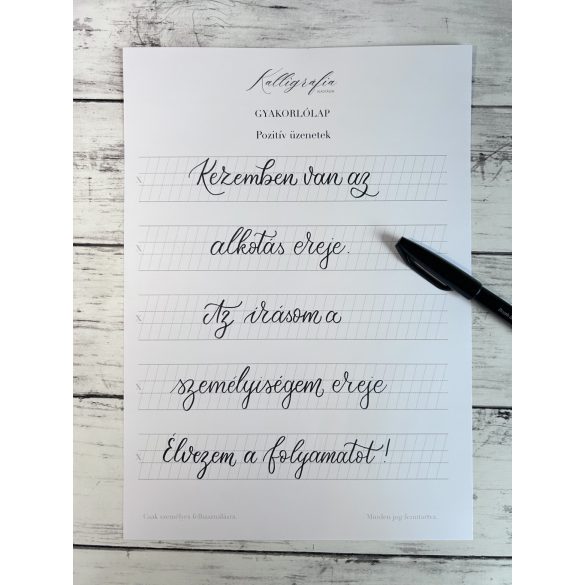 Kalligráfia
GYAKORLÓLAP
Pozitív üzenetek
Kezemben van az
alkotás ereje.
Az írásom a
személyiségem ereje
Élvezem a folyamatot!
Csak személyes felhasználásra.
Minden jog fenntartva.